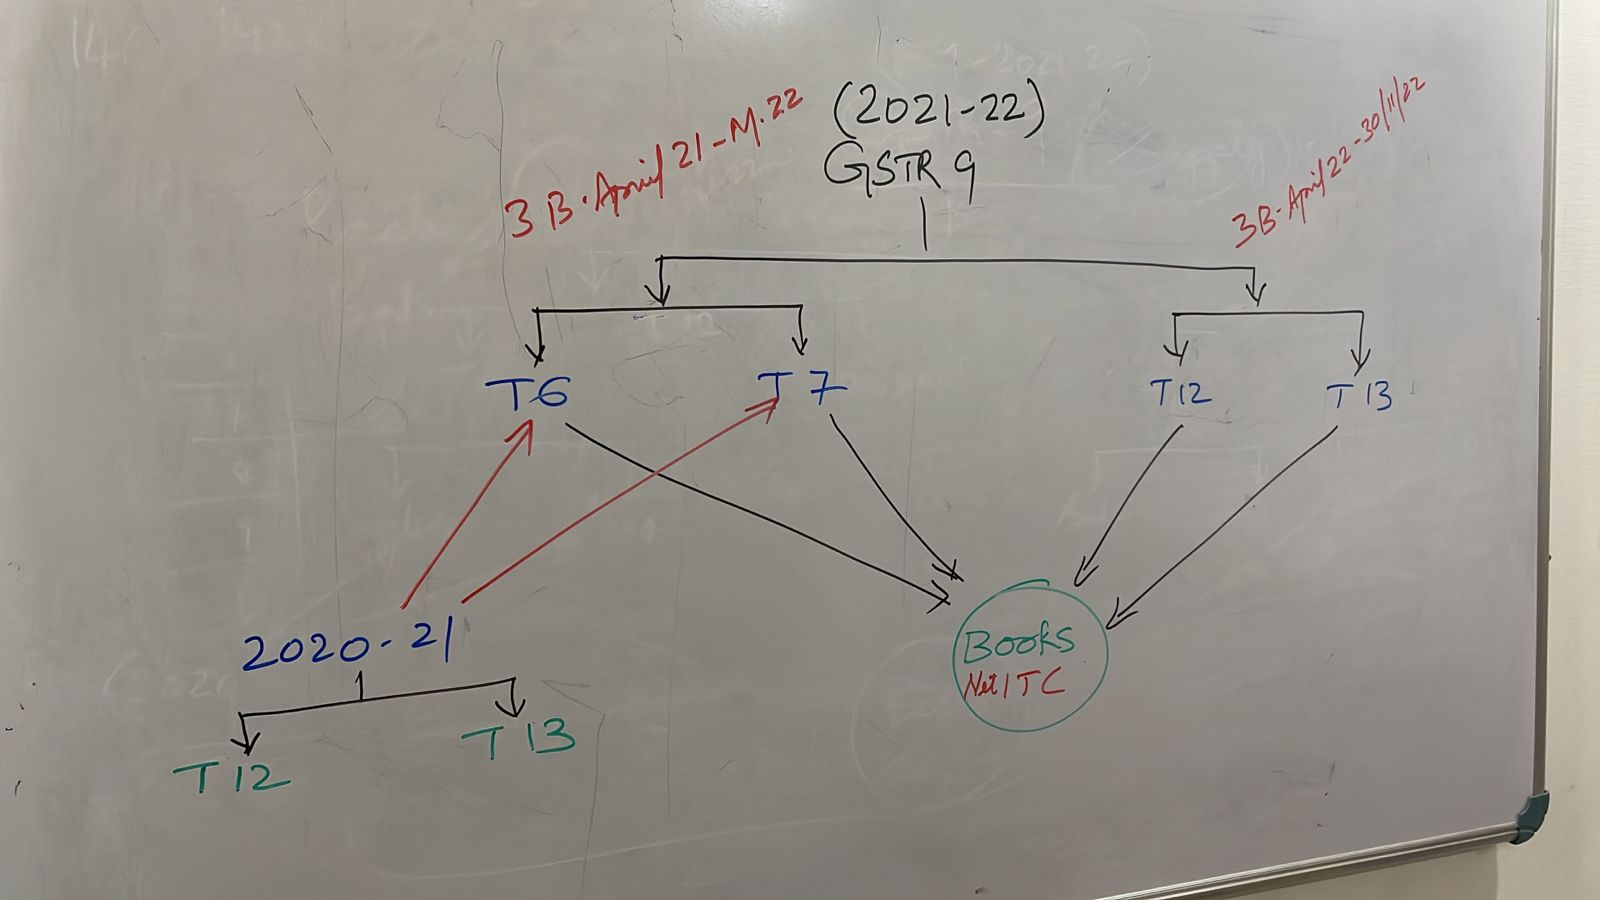 (2021-22)
GSTR 9
3B. April 21-M.22
3B- April 22-30/11/22
T6
T7
T12
T 13
2020-21
T12
T 13
Books
Net ITC